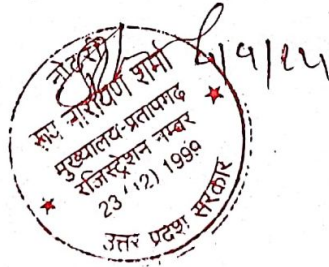 नोटरी
रूप नारायण शर्मा
मुख्यालय-प्रतापगढ़
रजिस्ट्रेशन नम्बर
23 (12) 1999
उत्तर प्रदेश सरकार